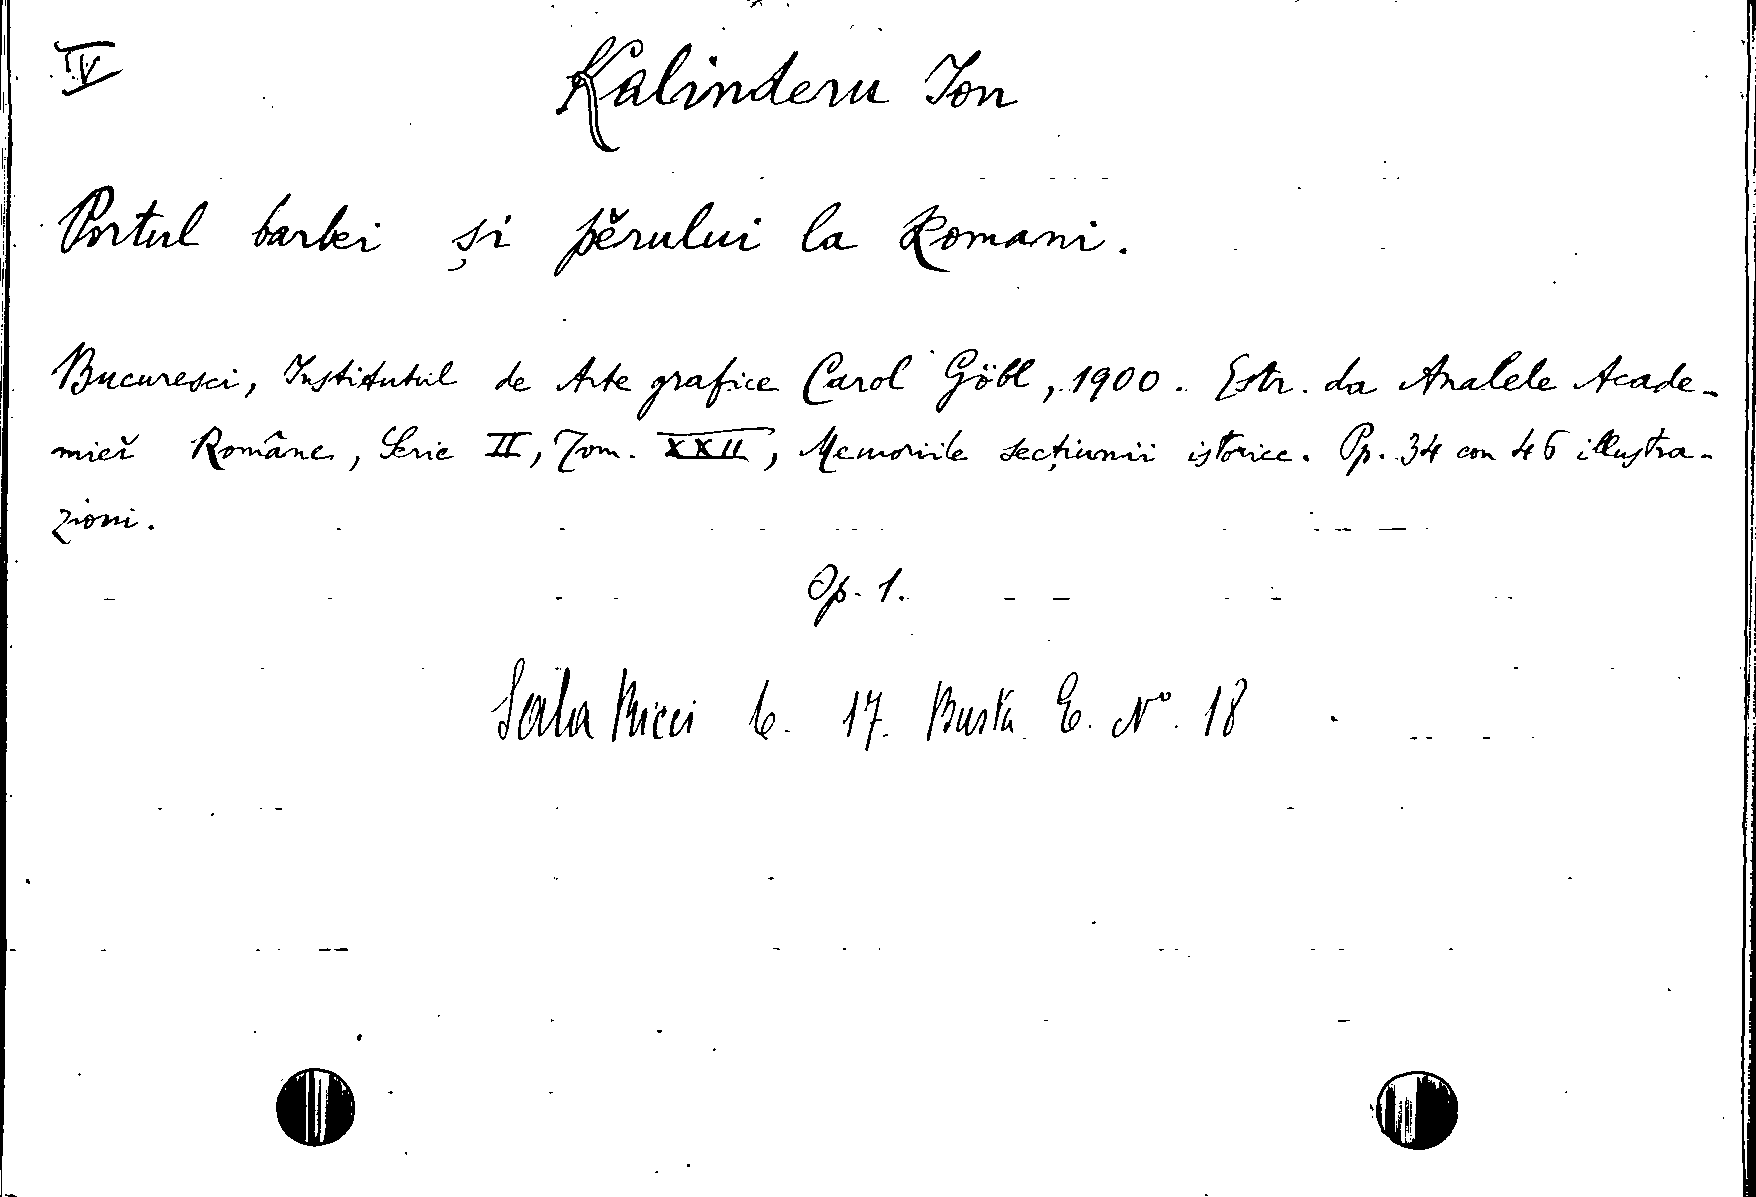 IV
Kalinderu Ion
Portul barbei și pĕrului la Romani.
Bucuresci, Institutul de Arte grafice Carol Göbl, 1900. Estr. da Analele Acade-
mieĭ Române, Serie II, Tom. XXII, Memoriile secțiunii istorice. Pp. 34 con 46 illustra-
zioni.
Op. 1.
Sala Ricci 17. Busta E. Nº. 18